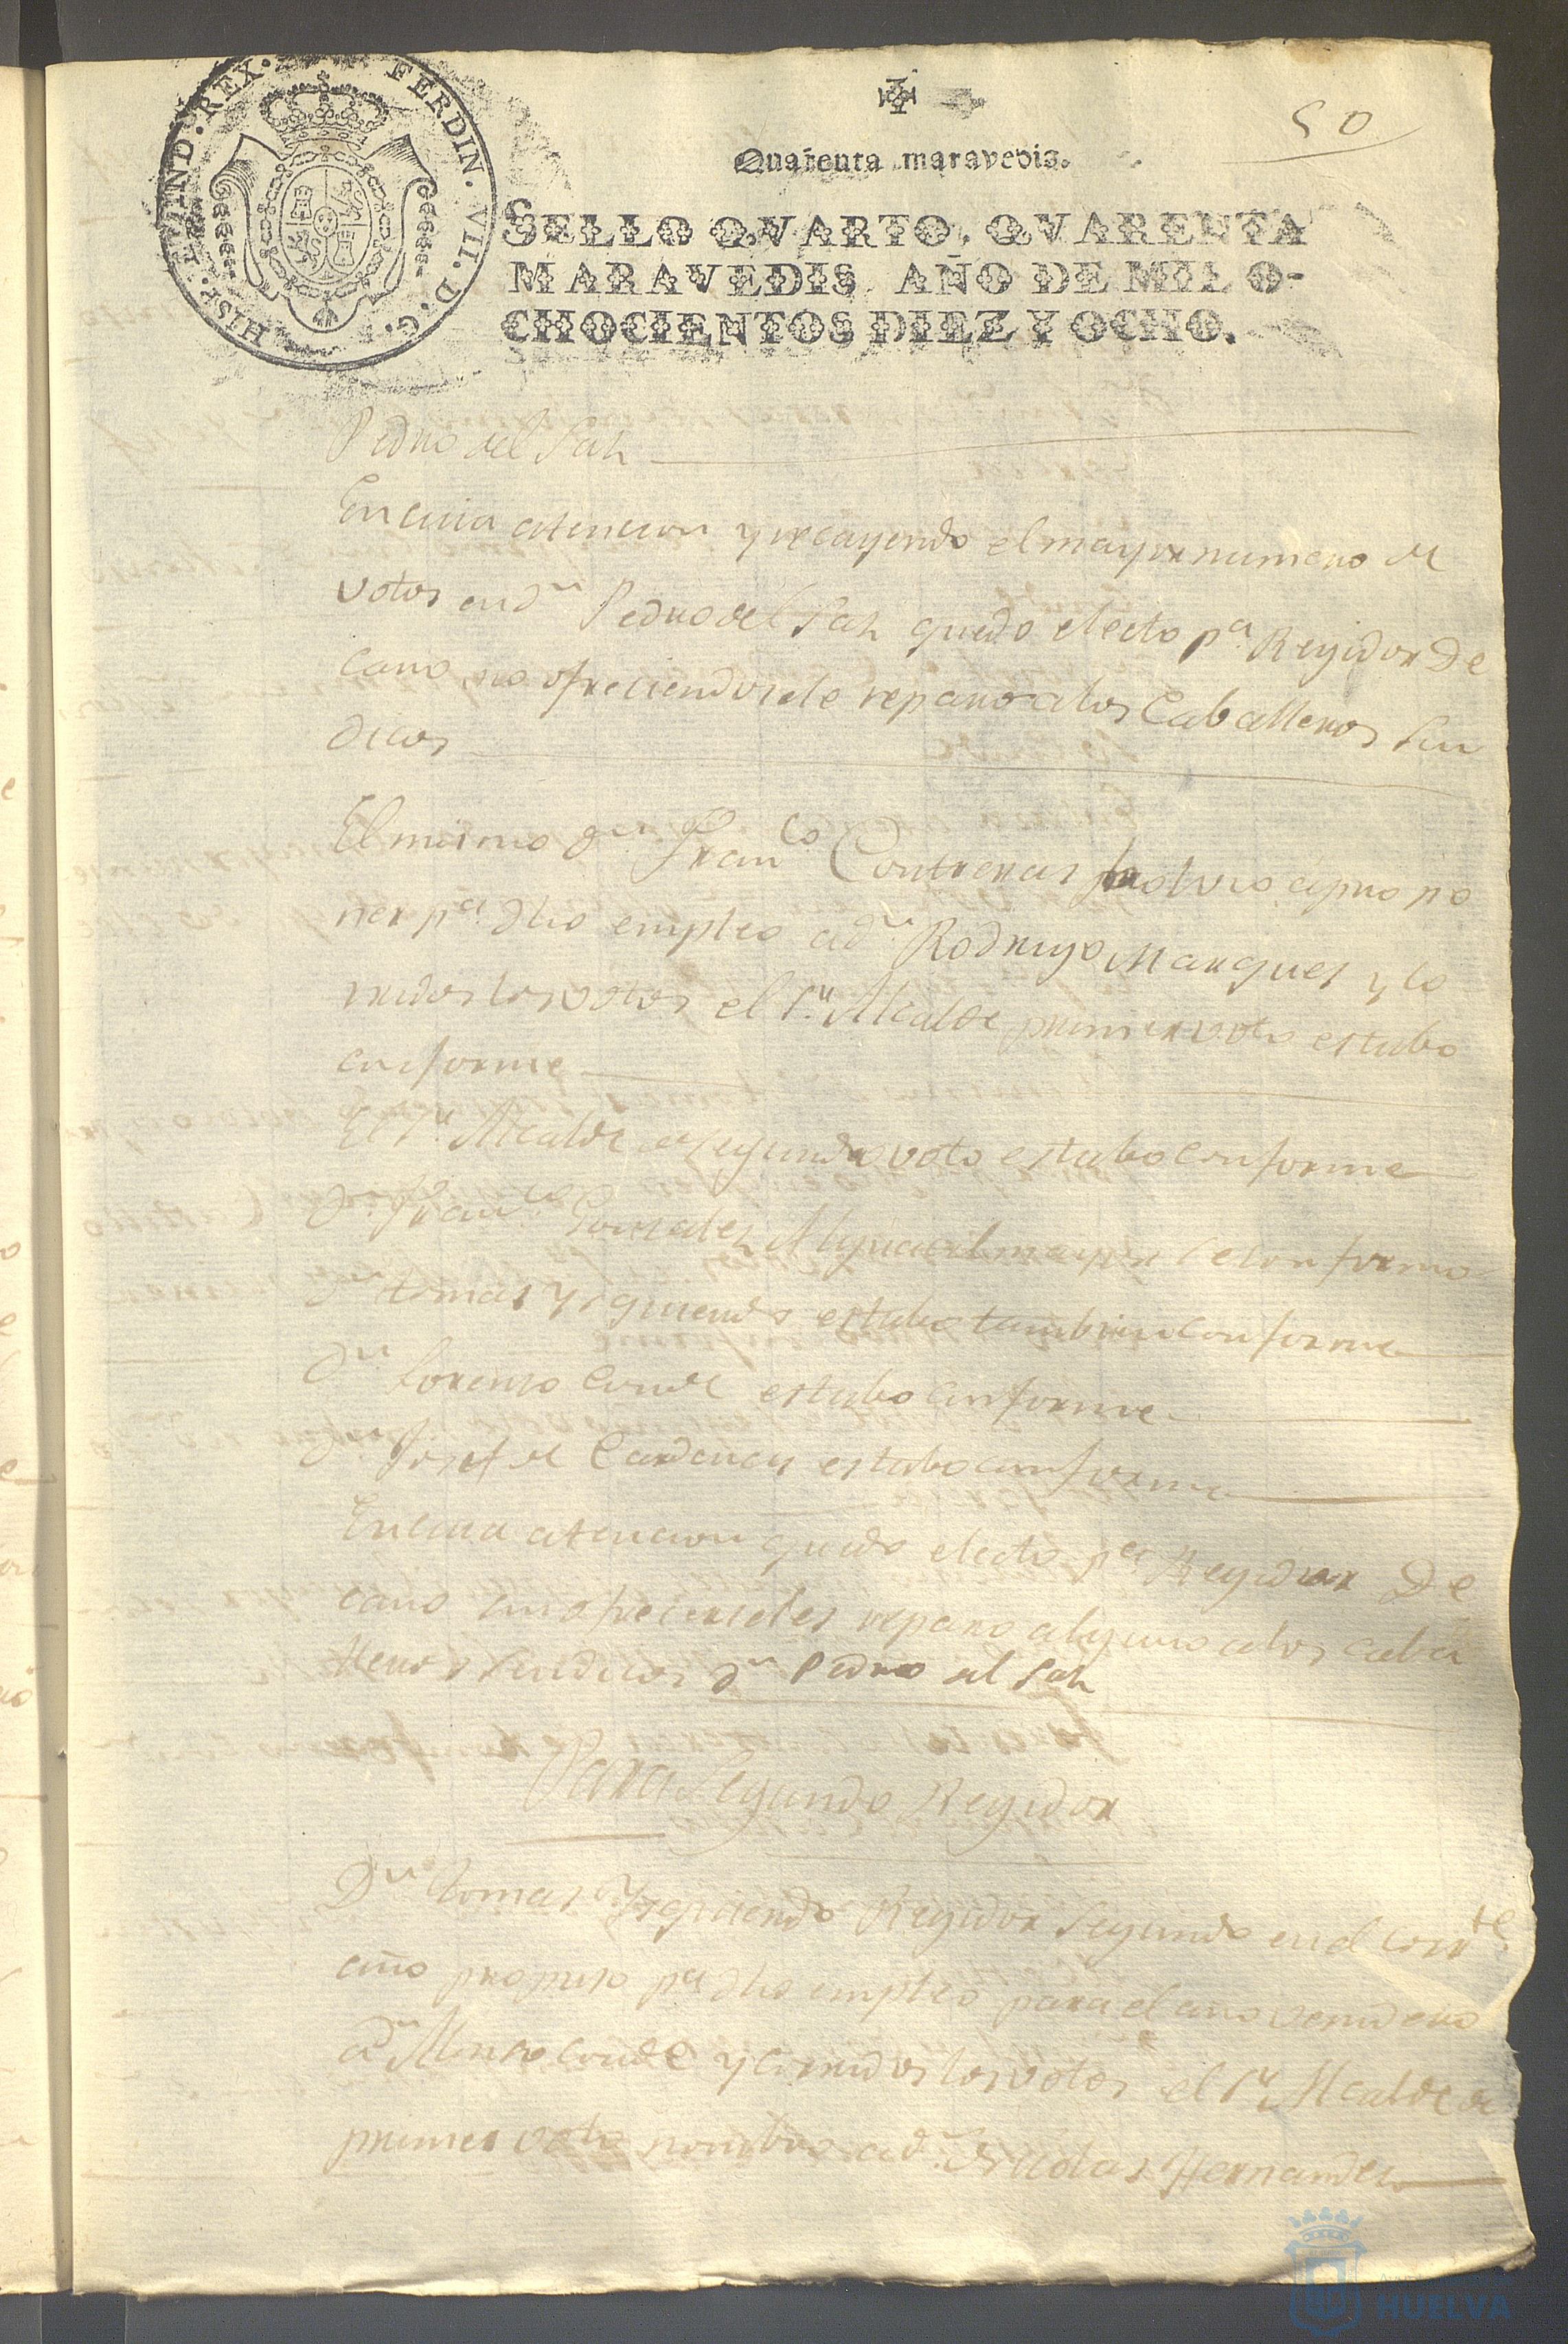 50
HISP. ET IND. REX. FERDIN. VII. D. G.
Quarenta maravedis.
SELLO QVARTO, QVARENTA
MARAVEDIS, AÑO DE MIL O-
CHOCIENTOS DIEZ Y OCHO.
Pedro del Saz
En cuia atencion y recayendo el mayor numero de
votos en dn. Pedro del Saz quedo electo pa. Regidor De
cano, no ofreciendosele reparo a los Caballeros Sin
dicos
El mismo dn. Franco. Contreras volvio á propo
ner pa. dho empleo a dn. Rodrigo Marques y co
rridos los votos el Sr. Alcalde primer voto estubo
conforme
El Sr. Alcalde de segundo voto estubo conforme
dn. Franco. Gonzalez Alguacil mayor se conformo
dn. tomas Yzquierdo estubo tambien conforme
dn. Lorenzo Conde estubo conforme
dn. Josef de Cardenas estubo conforme
En cuia atencion quedo electo pa. Regidor De
cano sin ofrecerseles reparo alguno a los caba
lleros Sindicos dn. Pedro del Saz
Para Segundo Regidor
Dn. tomas Yzquierdo Regidor Segundo en el corrte.
año propuso pa. dho empleo para el año venidero
a dn. Alonso Conde y corridos los votos el Sr. Alcalde de
primer voto nombro a dn. Nicolas Hernandez
HUELVA